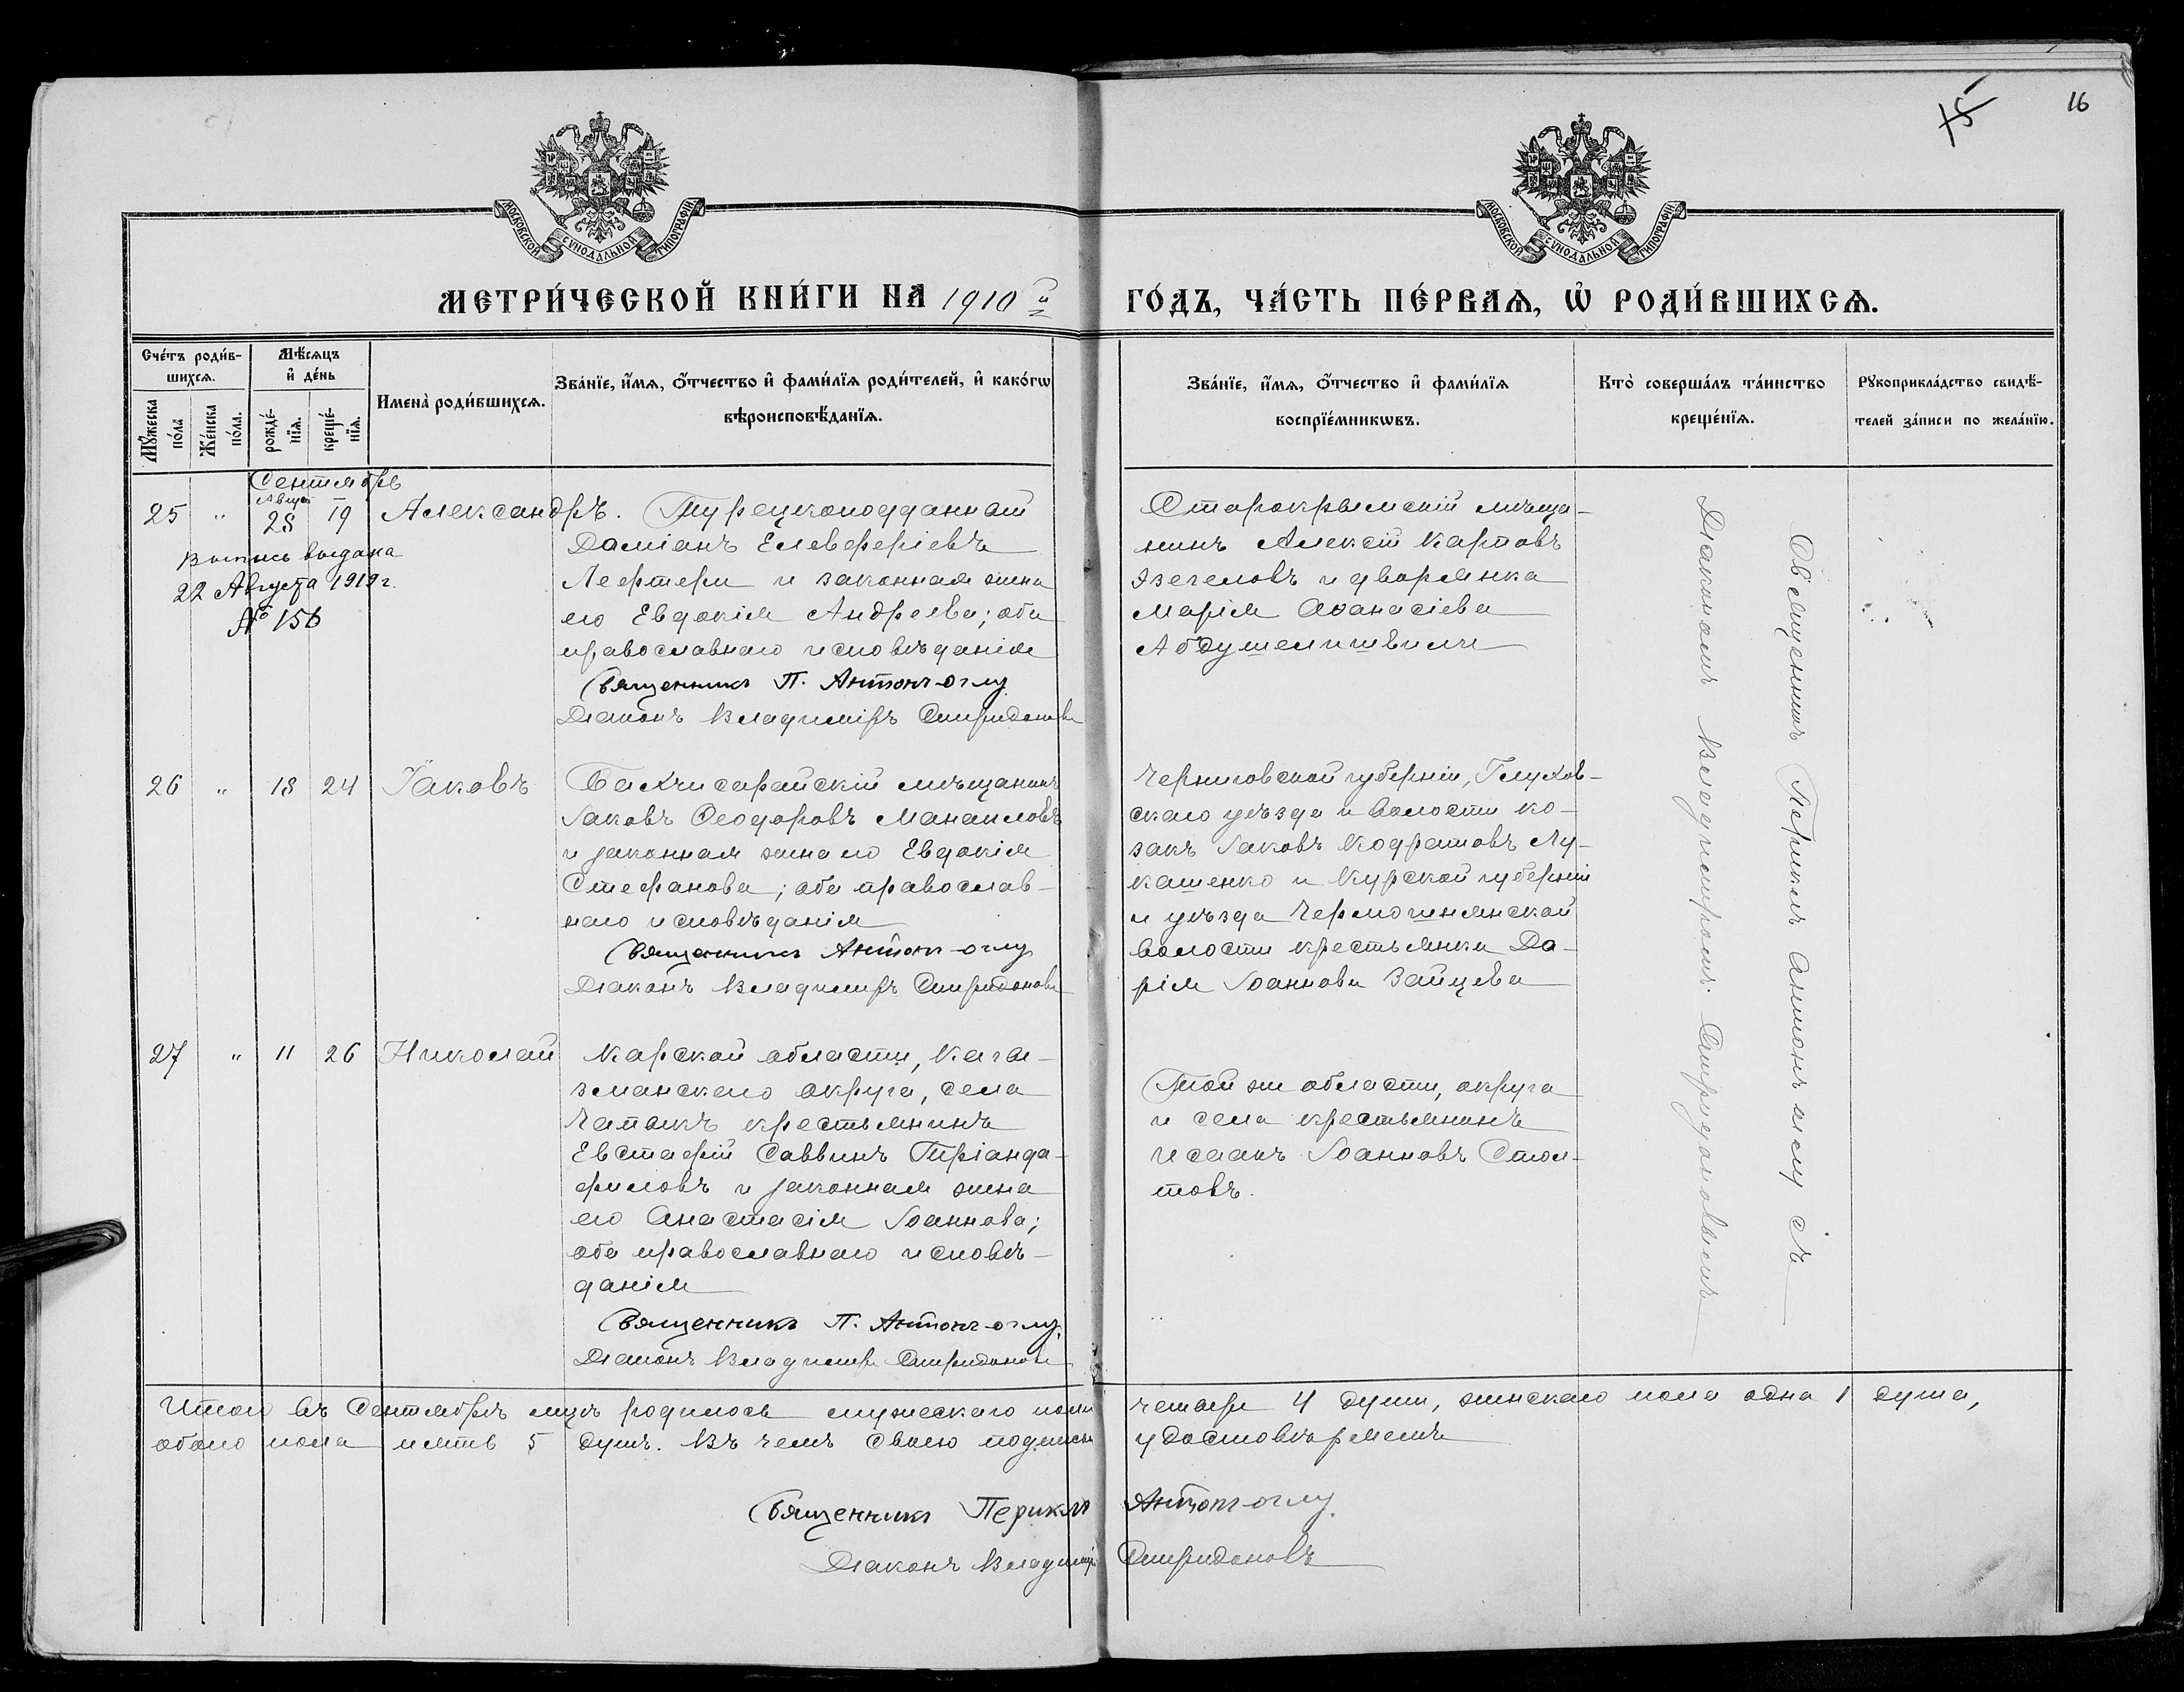 15
16
МОСКОВСКОЙ СѴНОДАЛЬНОЙ ТИПОГРАФІИ
МОСКОВСКОЙ СѴНОДАЛЬНОЙ ТИПОГРАФІИ
МЕТРИ́ЧЕСКОЙ КНИ́ГИ НА 1910й ГО́ДЪ, ЧА́СТЬ ПЕ́РВАѦ, Ѡ҆ РОДИ́ВШИХСѦ.
Сче́тъ роди́в-
шихсѧ.
Мꙋ́жеска по́ла
Же́нска по́ла.
Мѣ́сѧцъ
и҆ де́нь
рожде́-
нїѧ.
креще́-
нїѧ.
Имена̀ роди́вшихсѧ.
Зва́нїе, и҆́мѧ, ѻ҆́тчество и҆ фами́лїѧ роди́телей, и҆ како́гѡ
вѣроисповѣ́данїѧ.
Зва́нїе, и҆́мѧ, ѻ҆́тчество и҆ фами́лїѧ
воспрїе́мникѡвъ.
Кто̀ соверша́лъ та́инство
креще́нїѧ.
Рꙋкоприкла́дство свидѣ́-
телей за́писи по жела́нїю.
Сентябрь
Авгус
25 " 28 19 Александръ.
Выпись выдана
22 Августа 1912 г.
№ 156
Турецкоподданный
Даміанъ Елевферіевъ
Лефтери и законная жена
его Евдокія Андреева; оба
православнаго исповѣданія
Священникъ П. Антонъ-оглу
Діаконъ Владиміръ Спиридоновъ
Старокрымскій мѣща-
нинъ Алексій Карповъ
Эзегеловъ и дворянка
Марія Аѳанасіева
Абдушелишвили
26 " 18 24 Іаковъ
Бахчисарайскій мѣщанинъ
Іаковъ Ѳеодоровъ Манаиловъ
и законная жена его Евдокія
Стефанова; оба православ-
наго исповѣданія
Священникъ Антонъ-оглу
Діаконъ Владиміръ Спиридоновъ
Черниговской губерніи, Глухов-
скаго уѣзда и волости ко-
закъ Іаковъ Кодратовъ Лу-
кашенко и Курской губерніи
и уѣзда Чермошнянской
волости крестьянка Да-
рія Іоаннова Зайцева
27 " 11 26 Николай
Карской области, Кагы-
зманскаго округа, села
Чапикъ крестьянинъ
Евстафій Саввинъ Тріанда-
филовъ и законная жена
его Анастасія Іоаннова;
оба православнаго исповѣ-
данія
Священникъ П. Антонъ-оглу
Діаконъ Владиміръ Спиридоновъ
Той же области, округа
и села крестьянинъ
Исаакъ Іоанновъ Стол-
товъ.
Священникъ Периклъ Антонъ-оглу съ
Діакономъ Владиміромъ Спиридоновымъ
Итого въ Сентябрѣ мцѣ родилось мужескаго пола четыре 4 души, женскаго пола одна 1 душа,
обоего пола пять 5 душъ. Въ чемъ своею подписью удостовѣряемъ
Священникъ Периклъ Антонъ-оглу
Діаконъ Владиміръ Спиридоновъ